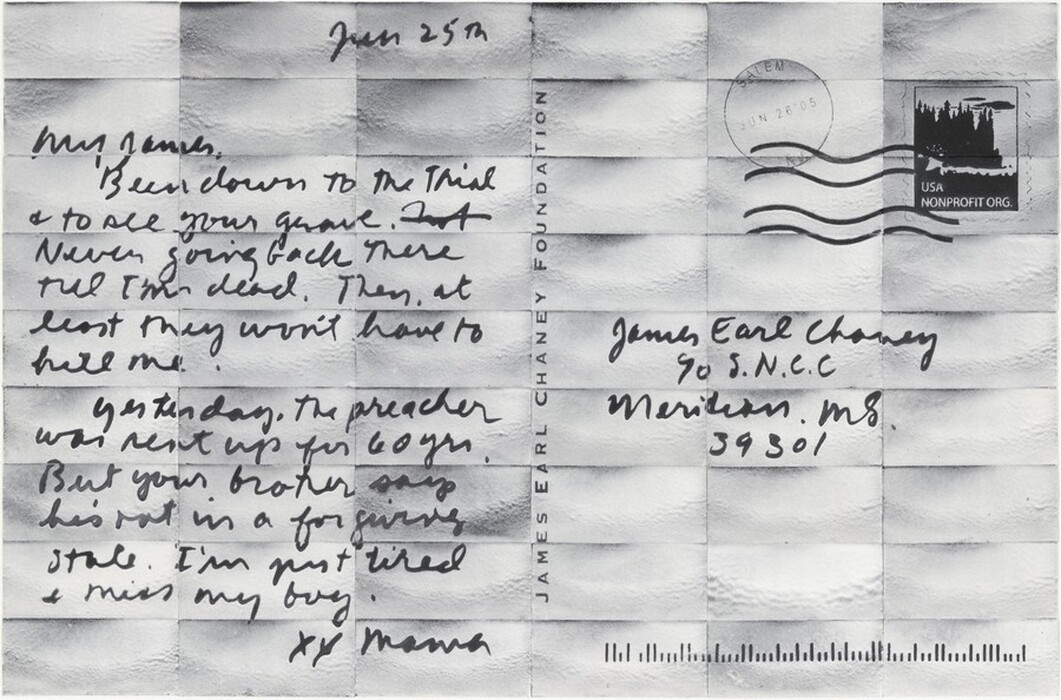 Jun 25th
My James,
Been down to the Trial
& to see your grave. Not
Never going back there
till I'm dead. Then, at
least they won't have to
kill me.
Yesterday, the preacher
was sent up for 60 yrs.
But your brother says
he's not in a forgiving
state. I'm just tired
& miss my boy.
XX Mama
JAMES EARL CHANEY FOUNDATION
SALEM
JUN 26'05
USA
NONPROFIT ORG.
James Earl Chaney
c/o S.N.C.C
Meridian. MS.
39301